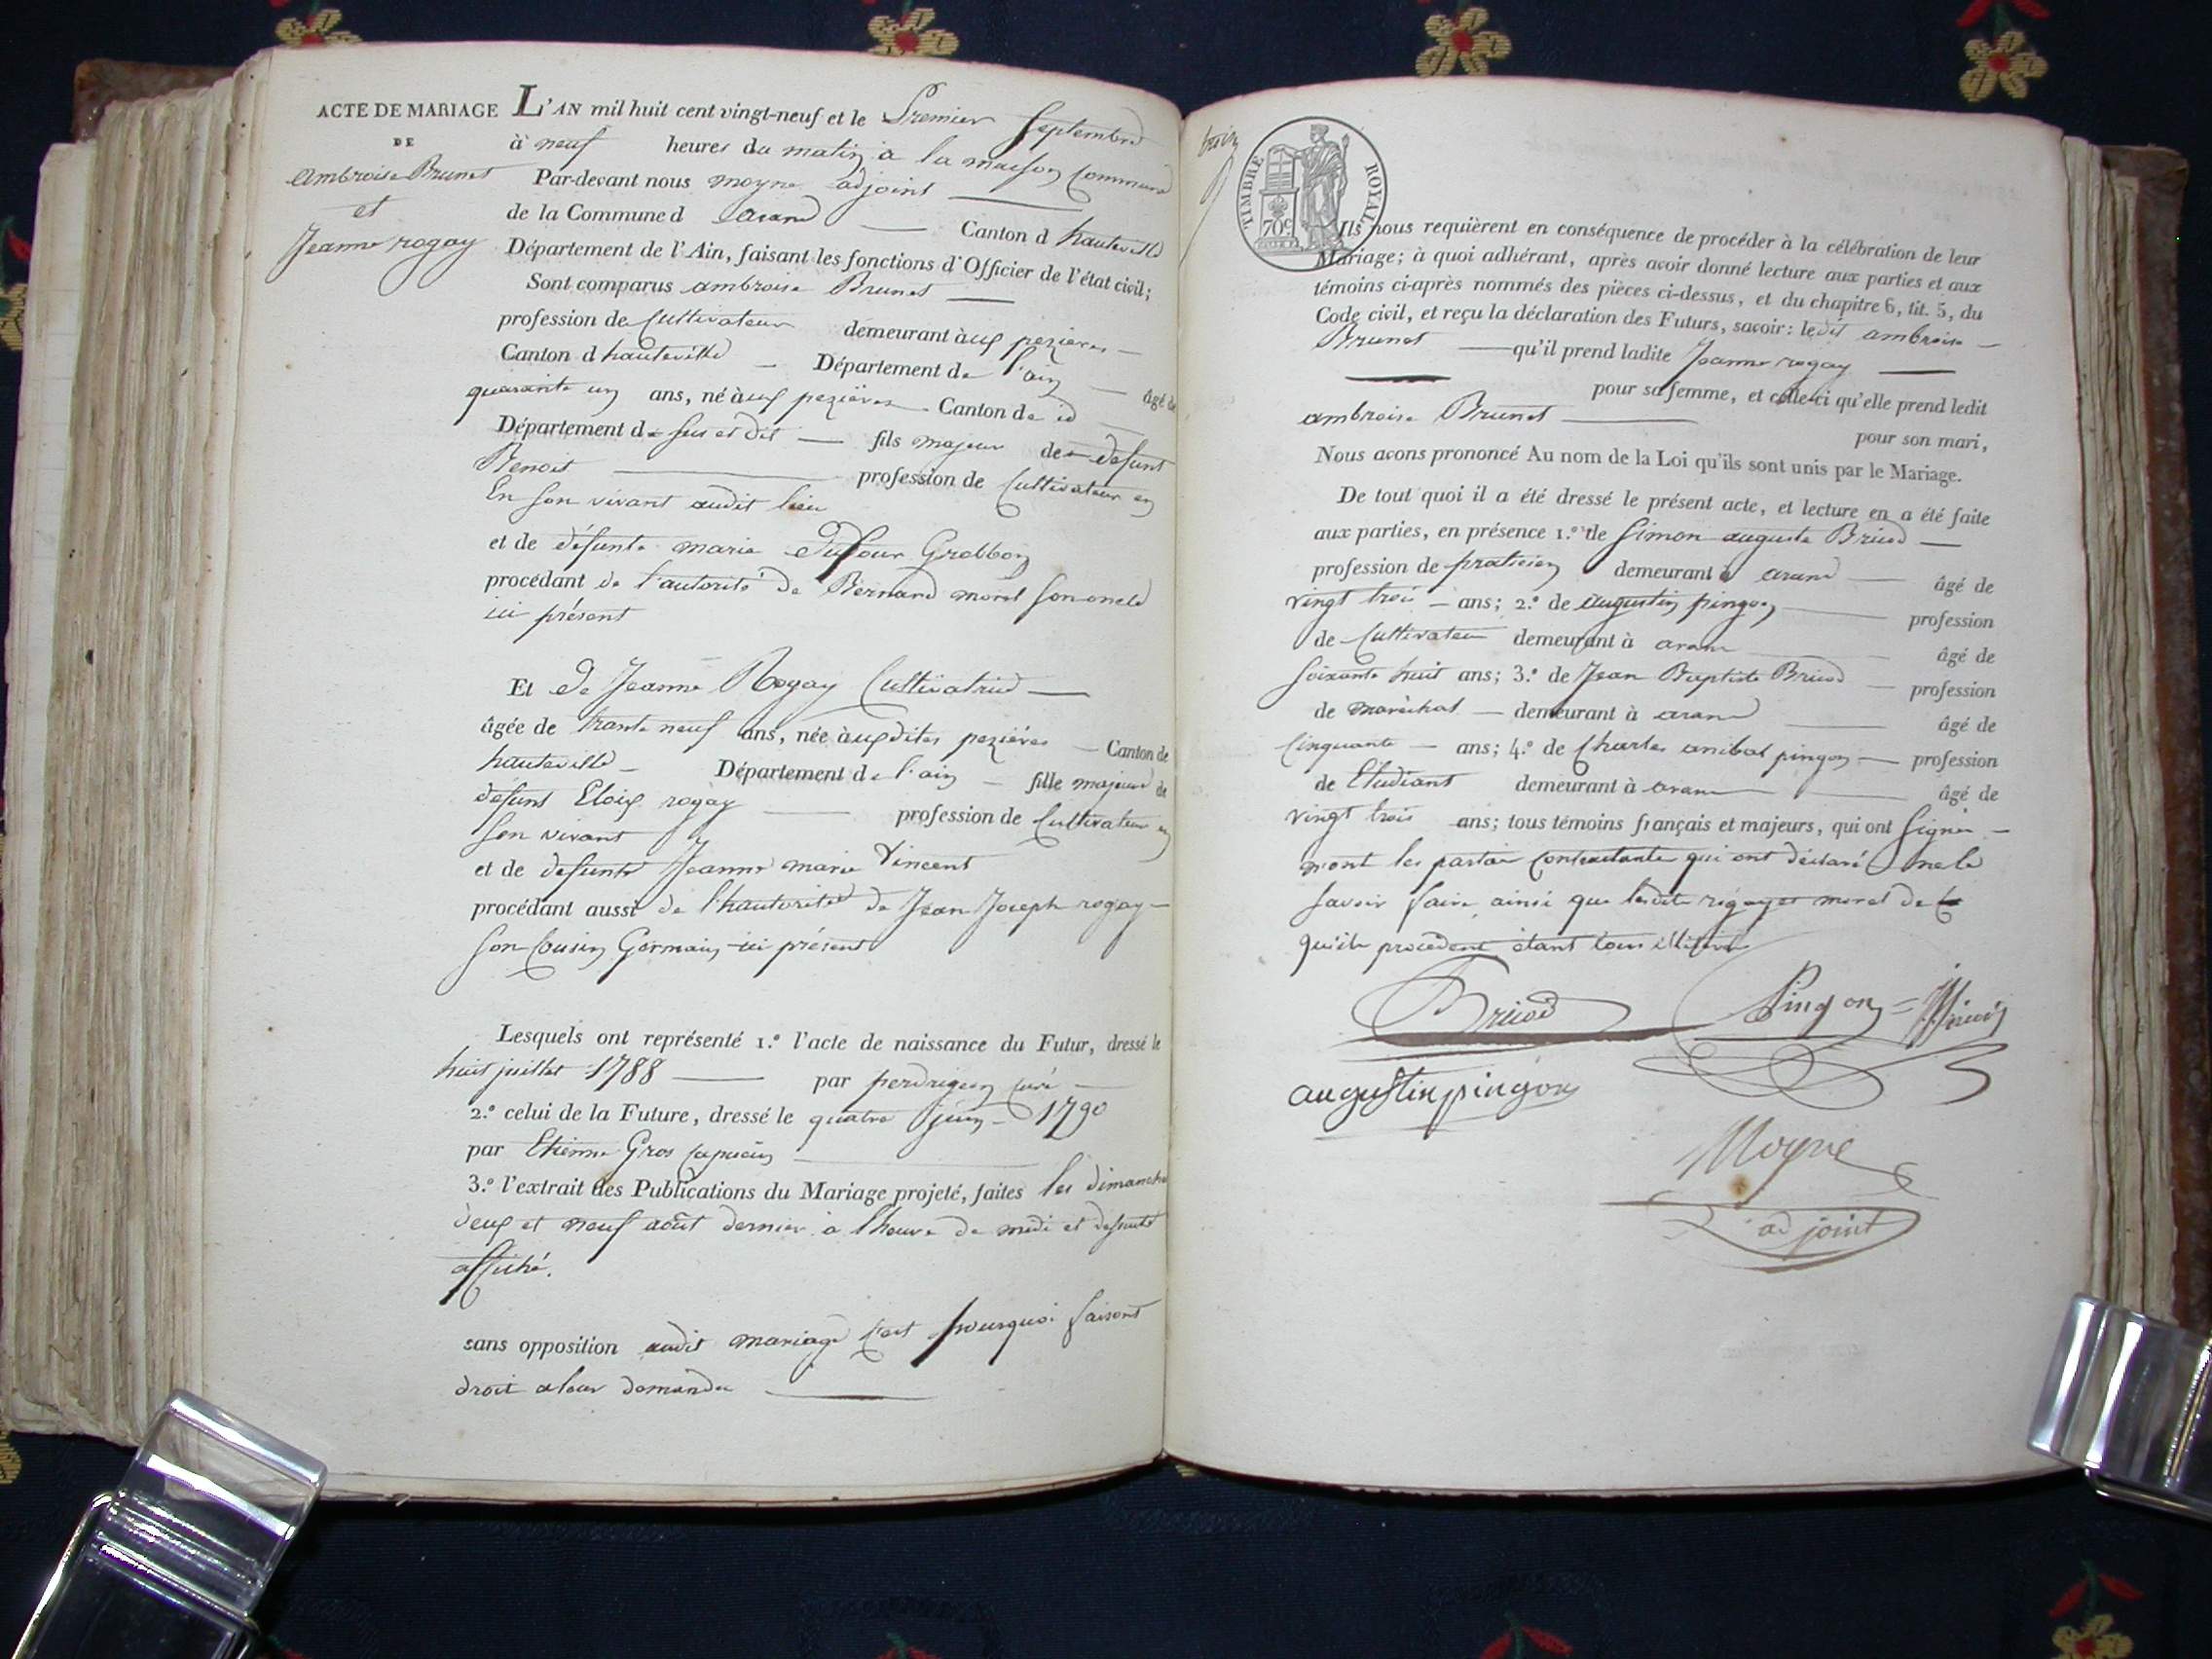 ACTE DE MARIAGE
DE
Ambroise Brunet
et
Jeanne rogay
L'AN mil huit cent vingt-neuf et le Premier Septembre
à neuf heures du matin a la maison Commune
Par-devant nous moyne adjoint
de la Commune d arand Canton d hauteville
Département de l'Ain, faisant les fonctions d'Officier de l'état civil;
Sont comparus ambroise Brunet
profession de Cultivateur demeurant à aux pezieres
Canton d hauteville Département de l'ain âgé de
quarante un ans, né à aux pezières Canton de id
Département de sus et dit fils majeur de defunt
Benoit profession de Cultivateur en
En son vivant audit lieu
et de défunte marie Dufour Grobbon
procédant de l'autorité de Bernard morel son oncle
ici présent
Et de Jeanne Rogay Cultivatrice
âgée de trante neuf ans, née à auxdites pezières Canton de
hauteville Département de l'ain fille majeure de
défunt Eloix rogay profession de Cultivateur en
son vivant
et de defunte Jeanne marie Vincent
procédant aussi de l'hautorité de Jean Joseph rogay
son Cousin Germain ici présent
Lesquels ont représenté 1.º l'acte de naissance du Futur, dressé le
huit juillet 1788 par perdrigeon curé
2.º celui de la Future, dressé le quatre juin 1790
par Etienne Gros Capucin
3.º l'extrait des Publications du Mariage projeté, faites les dimanche
deux et neuf août dernier a l'heure de midi et desuite
affiché.
sans opposition audit mariage c'est pourquoi faisant
droit a leur demande
TIMBRE ROYAL
70c
Ils nous requièrent en conséquence de procéder à la célébration de leur
Mariage; à quoi adhérant, après avoir donné lecture aux parties et aux
témoins ci-après nommés des pièces ci-dessus, et du chapitre 6, tit. 5, du
Code civil, et reçu la déclaration des Futurs, savoir: ledit ambroise
Brunet qu'il prend ladite Jeanne rogay
pour sa femme, et celle-ci qu'elle prend ledit
ambroise Brunet
pour son mari,
Nous avons prononcé Au nom de la Loi qu'ils sont unis par le Mariage.
De tout quoi il a été dressé le présent acte, et lecture en a été faite
aux parties, en présence 1.º de Simon auguste Bricod
profession de praticien demeurant à arand âgé de
vingt trois ans; 2.º de augustin pingon profession
de Cultivateur demeurant à aran âgé de
soixante huit ans; 3.º de Jean Baptiste Bricod profession
de maréchal demeurant à arand âgé de
Cinquante ans; 4.º de Charles anibal pingon profession
de Etudiant demeurant à aran âgé de
vingt trois ans; tous témoins français et majeurs, qui ont signé
nont les partie Contractante qui ont déclaré ne le
savoir faire ainsi que morel de
qu'ils procedent étant tous illitéré
Bricod Pingon
augustin pingon
Moyne
adjoint